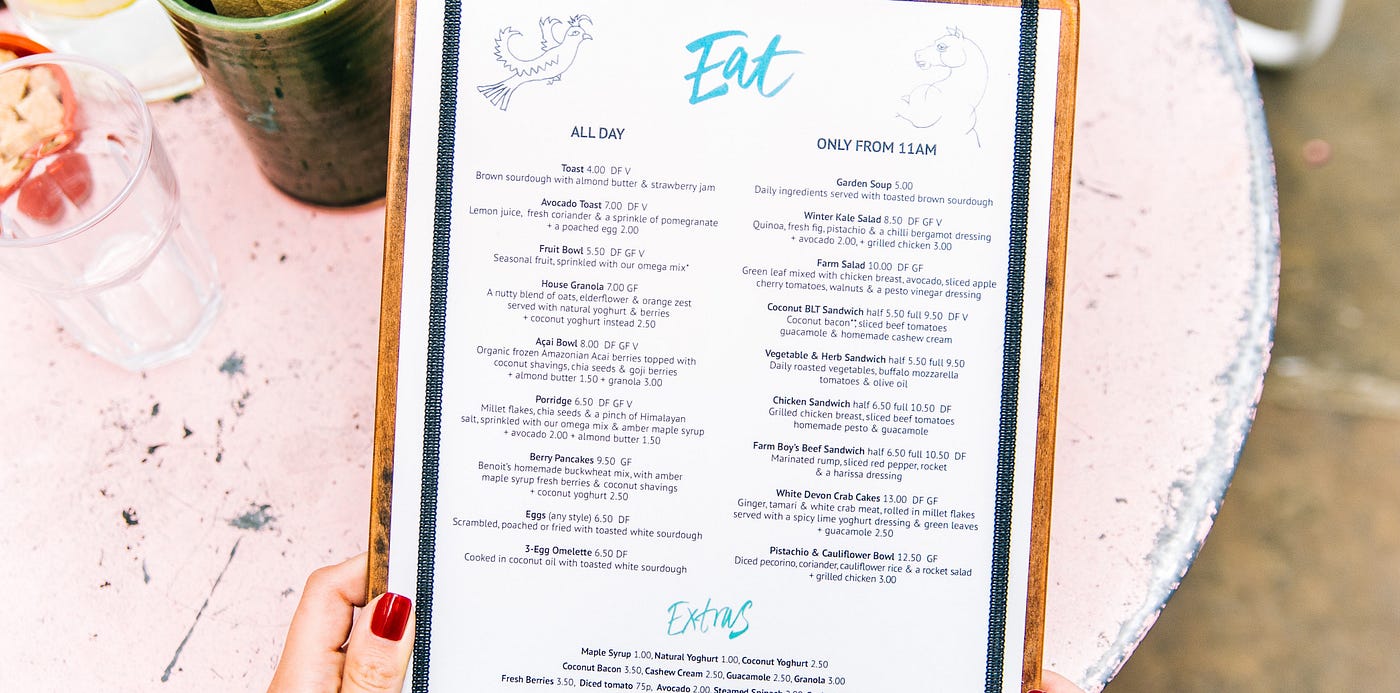 Eat
ALL DAY
Toast 4.00 DF V
Brown sourdough with almond butter & strawberry jam
Avocado Toast 7.00 DF V
Lemon juice, fresh coriander & a sprinkle of pomegranate
+ a poached egg 2.00
Fruit Bowl 5.50 DF GF V
Seasonal fruit, sprinkled with our omega mix*
House Granola 7.00 GF
A nutty blend of oats, elderflower & orange zest
served with natural yoghurt & berries
+ coconut yoghurt instead 2.50
Açai Bowl 8.00 DF GF V
Organic frozen Amazonian Acai berries topped with
coconut shavings, chia seeds & goji berries
+ almond butter 1.50 + granola 3.00
Porridge 6.50 DF GF V
Millet flakes, chia seeds & a pinch of Himalayan
salt, sprinkled with our omega mix & amber maple syrup
+ avocado 2.00 + almond butter 1.50
Berry Pancakes 9.50 GF
Benoit's homemade buckwheat mix, with amber
maple syrup fresh berries & coconut shavings
+ coconut yoghurt 2.50
Eggs (any style) 6.50 DF
Scrambled, poached or fried with toasted white sourdough
3-Egg Omelette 6.50 DF
Cooked in coconut oil with toasted white sourdough
ONLY FROM 11AM
Garden Soup 5.00
Daily ingredients served with toasted brown sourdough
Winter Kale Salad 8.50 DF GF V
Quinoa, fresh fig, pistachio & a chilli bergamot dressing
+ avocado 2.00, + grilled chicken 3.00
Farm Salad 10.00 DF GF
Green leaf mixed with chicken breast, avocado, sliced apple
cherry tomatoes, walnuts & a pesto vinegar dressing
Coconut BLT Sandwich half 5.50 full 9.50 DF V
Coconut bacon**, sliced beef tomatoes
guacamole & homemade cashew cream
Vegetable & Herb Sandwich half 5.50 full 9.50
Daily roasted vegetables, buffalo mozzarella
tomatoes & olive oil
Chicken Sandwich half 6.50 full 10.50 DF
Grilled chicken breast, sliced beef tomatoes
homemade pesto & guacamole
Farm Boy's Beef Sandwich half 6.50 full 10.50 DF
Marinated rump, sliced red pepper, rocket
& a harissa dressing
White Devon Crab Cakes 13.00 DF GF
Ginger, tamari & white crab meat, rolled in millet flakes
served with a spicy lime yoghurt dressing & green leaves
+ guacamole 2.50
Pistachio & Cauliflower Bowl 12.50 GF
Diced pecorino, coriander, cauliflower rice & a rocket salad
+ grilled chicken 3.00
Extras
Maple Syrup 1.00, Natural Yoghurt 1.00, Coconut Yoghurt 2.50
Coconut Bacon 3.50, Cashew Cream 2.50, Guacamole 2.50, Granola 3.00
Fresh Berries 3.50, Diced tomato 75p, Avocado 2.00, Steamed Spinach